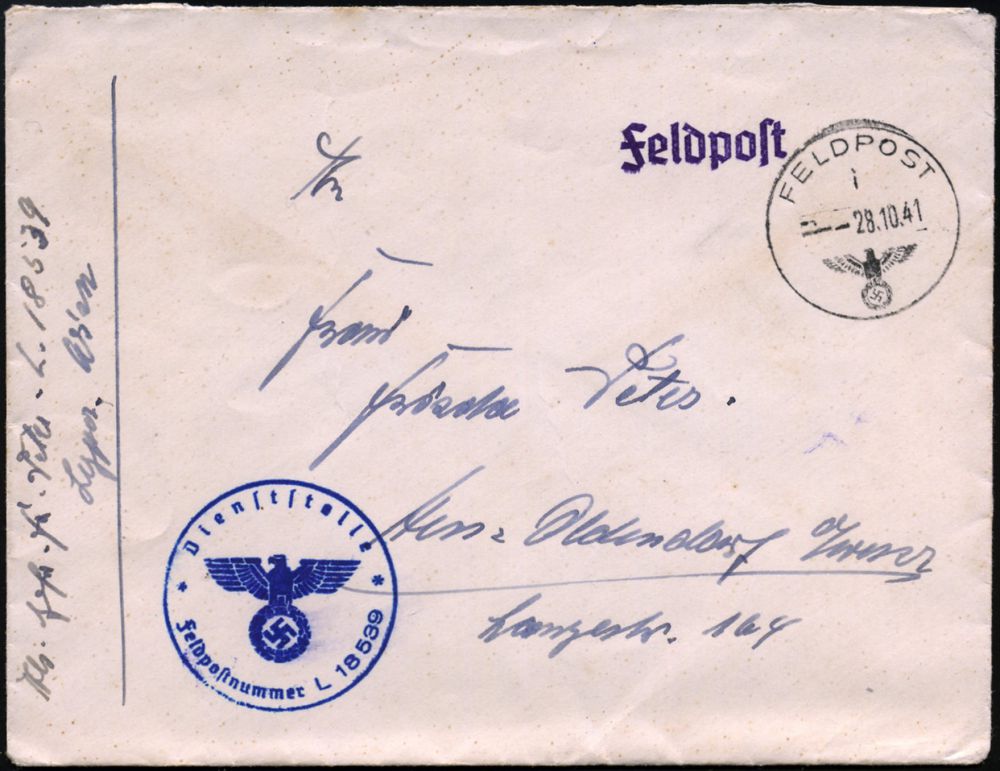 Feldpost
FELDPOST
i
28.10.41
An
Frau
Peter.
Hess. Oldendorf
Langestr. 164
Dienststelle
Feldpostnummer L 18539
Peter - L. 18539